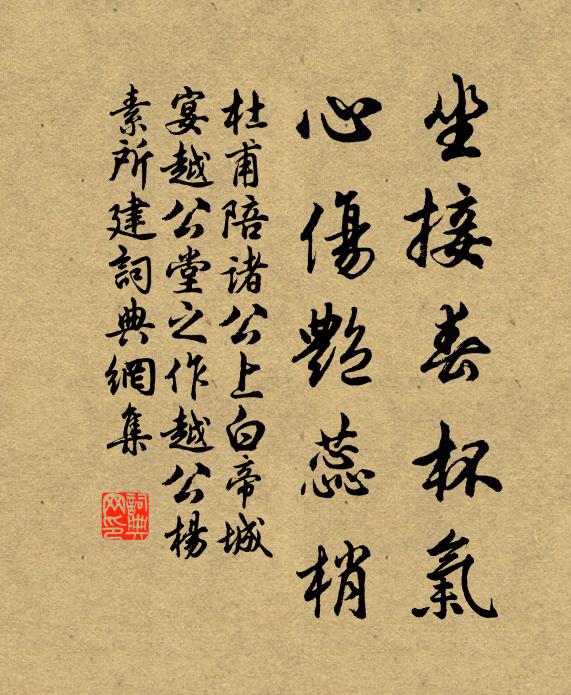 坐接春杯氣
心傷艷蕊梢
杜甫陪諸公上白帝城
宴越公堂之作越公楊
素所建詞典網集
詞典
网印